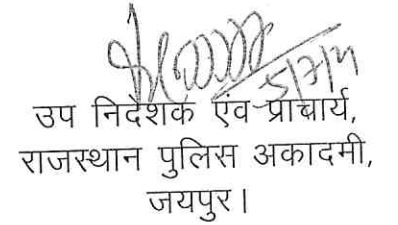 उप निदेशक एंव प्राचार्य,
राजस्थान पुलिस अकादमी,
जयपुर।